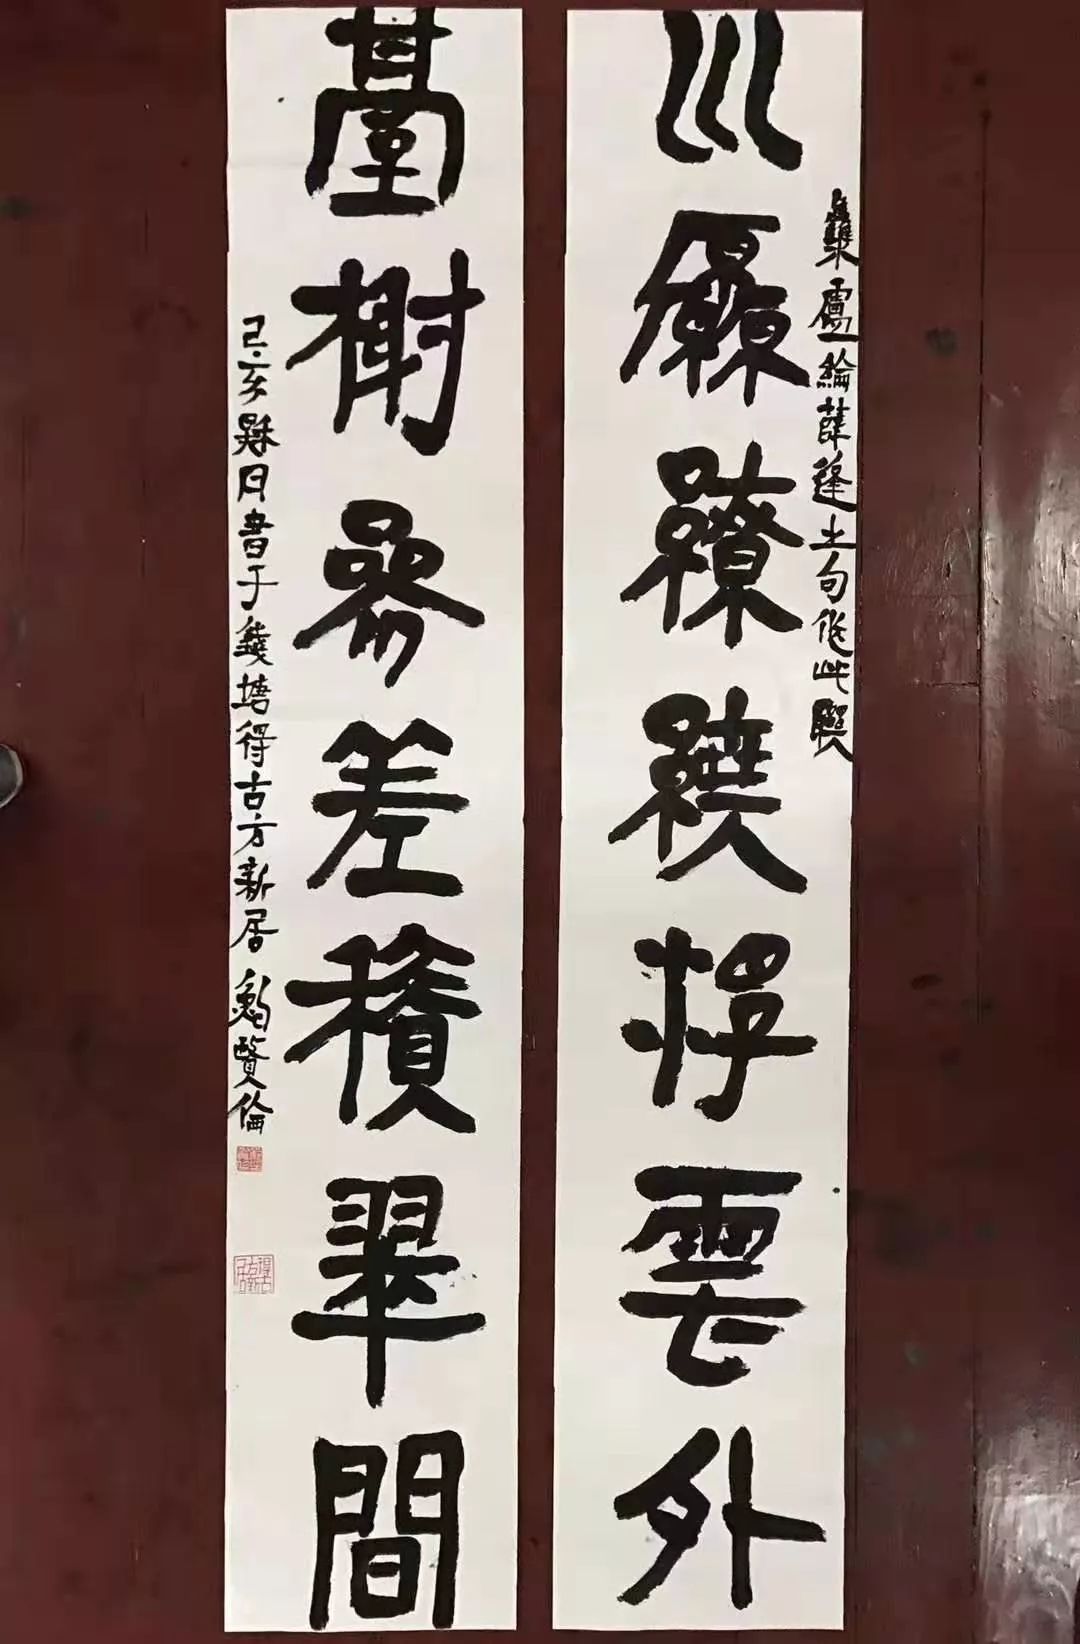 川原繚繞浮雲外
集盧綸薛逢之句作此聯
臺榭參差積翠間
己亥月書于錢塘得古方新居 鮑賢倫